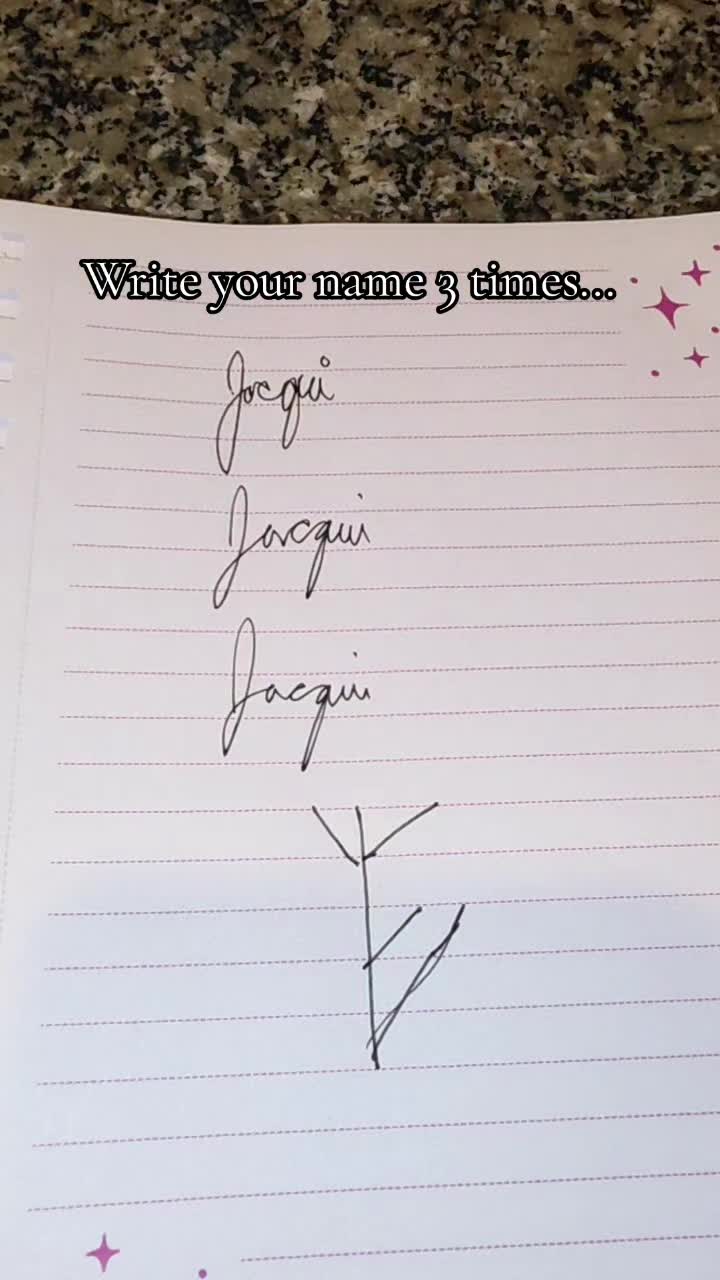 Write your name 3 times...
Jacqui
Jacqui
Jacqui